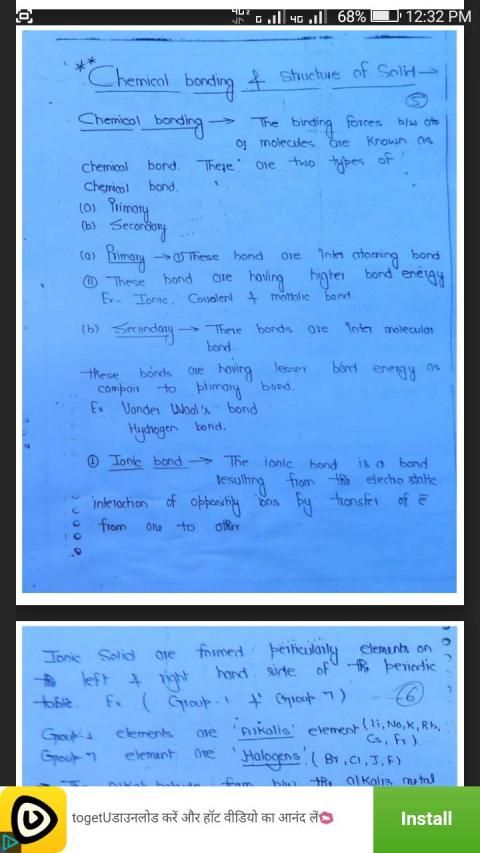 4G 68% 12:32 PM
** Chemical bonding & structure of Solid →
(5)
Chemical bonding → The binding forces b/w ato
of molecules are known as
chemical bond. There are two types of
Chemical bond.
(a) Primary
(b) Secondary
(a) Primary → (I) These bond are Inter atoming bond
(II) These bond are having higher bond energy
Ex- Ionic, Covalent & mattalic bond.
(b) Secondary → These bonds are Inter molecular
bond.
These bonds are having lesser bond energy as
compair to primary bond.
Ex Vander Waal's bond
Hydrogen bond.
(I) Ionic bond → The ionic bond is a bond
resulting from the electro static
interaction of oppositly ions by transfer of ē
from one to other
Ionic Solid are formed perticularly elements on
the left & right hand side of the periodic
table. Ex ( Group-1 & Group 7 ) (6)
Group-1 elements are 'Alkalis' element (Li, Na, K, Rb,
Cs, Fr).
Group 7 element are 'Halogens' ( Br, Cl, I, F)
b/w the alkalis metal
togetUडाउनलोड करें और हॉट वीडियो का आनंद लें
Install